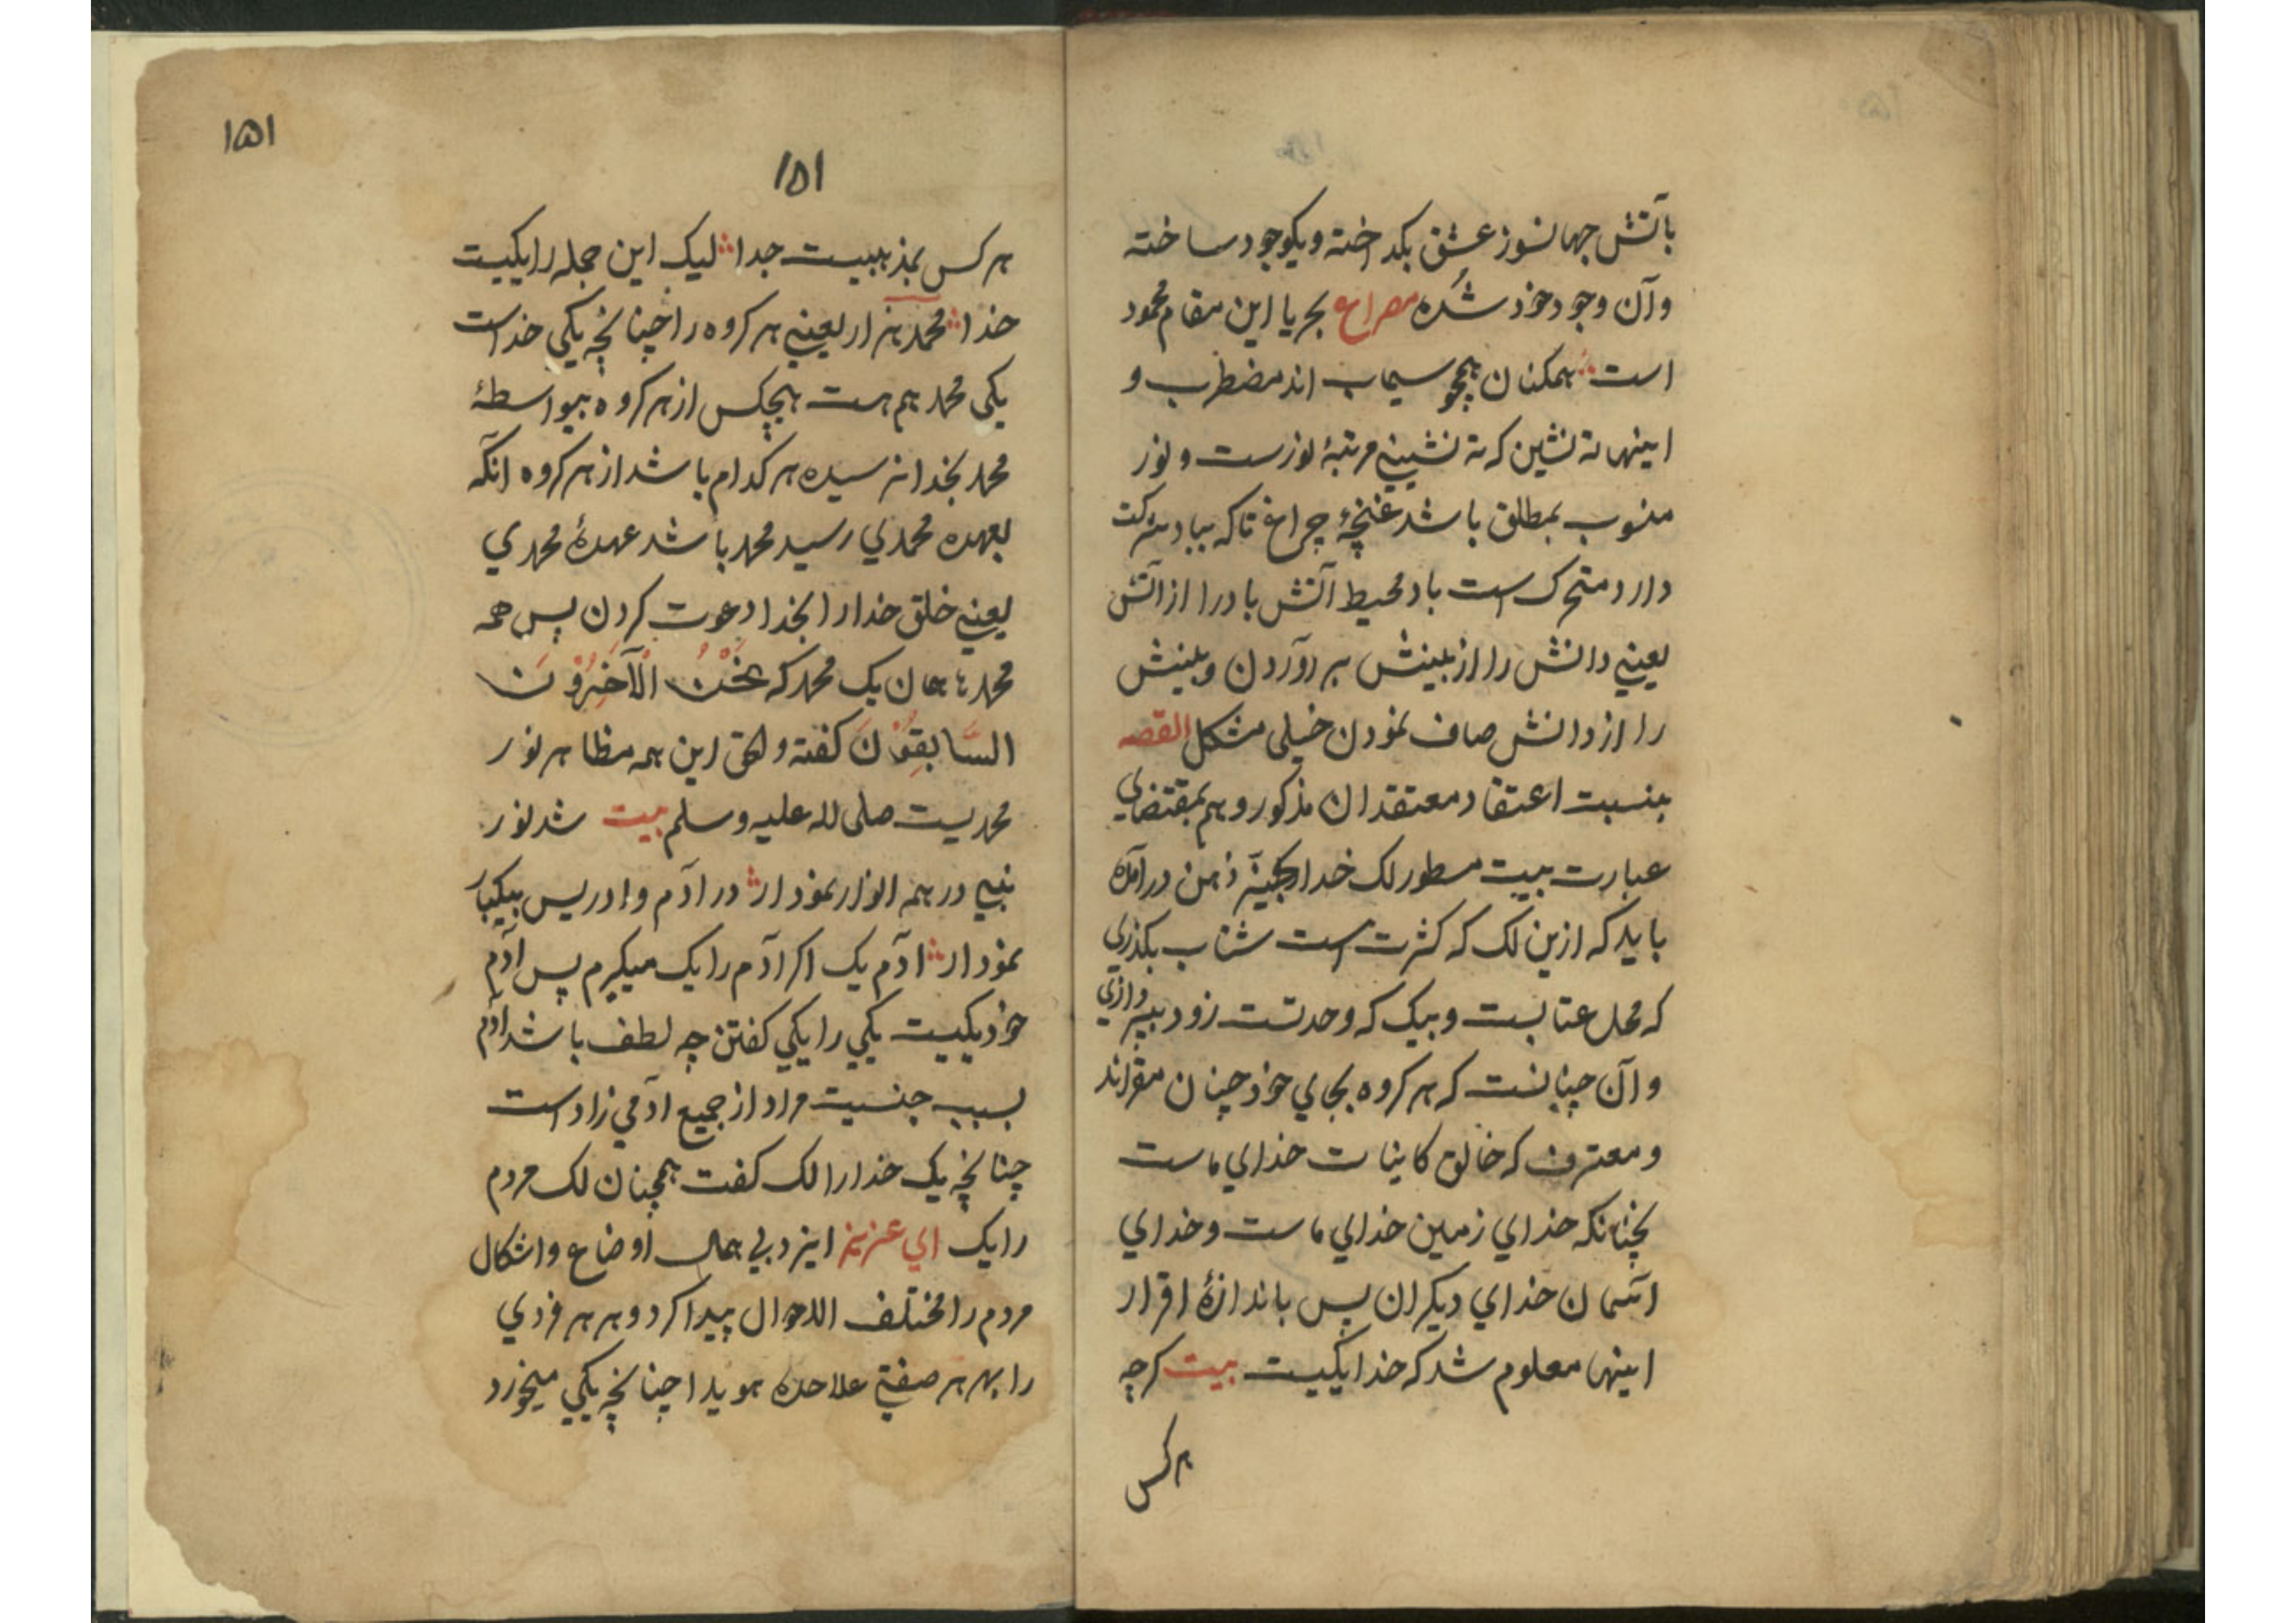 بآتش جهانسوز عشق بکداخته و یکوجود ساخته
وآن وجود خود شده مصراع بجریا این مقام محمود
است همکنان همچو سیماب اند مضطرب و
اینها ته نشین که ته نشینی مرتبهٔ نورست و نور
منسوب بمطلق باشد غنچهٔ چراغ تا که بباد شرکت
دارد متحرک است باد محیط آتش باد را از آتش
یعنی دانش را از بینش برآوردن و بینش
را از دانش صاف نمودن خیلی مشکل القصه
بنسبت اعتقاد معتقدان مذکور و هم بمقتضای
عبارت بیت مسطور لک خدا ذهن درآمده
باید که ازین لک که کثرت است شتاب بکذری
که محل عتابست و بیک که وحدتست زود بپردازی
وآن چنانست که هر کروه بجای خود چنان مقراند
و معترف که خالق کاینات خدای ماست
نچنانکه خدای زمین خدای ماست و خدای
آسمان خدای دیکران پس باندازهٔ اقرار
اینها معلوم شد که خدا یکیست بیت کرچه
هرکس
۱۵۱
۱۵۱
هرکس بمذهبیست جدا لیک این جمله را یکیست
خدا محمد هزار یعنی هر کروه را چنانچه یکی خداست
یکی محمد هم هست هیچکس از هر کروه بیواسطهٔ
محمد بخدا نرسیده هر کدام باشد از هر کروه آنکه
بعهده محمدی رسید محمد باشد عهدهٔ محمدی
یعنی خلق خدا را بخدا دعوت کردن پس همه
محمدها همان یک محمد که نَحْنُ الْآخِرُوْنَ
السَّابِقُوْنَ کفته و الحق این همه مظاهر نور
محمدیست صلی الله علیه وسلم بیت شد نور
نبی در همه انوار نمودار در آدم و ادریس بیکبار
نمودار آدم یک اکر آدم را یک میکیرم پس آدم
خود یکیست یکی را یکی کفتن چه لطف باشد آدم
بسبب جنسیت مراد از جمیع آدمی زاد است
چنانچه یک خدا را لک کفت همچنان لک مردم
را یک ای عزیز ایزد بی همال اوضاع و اشکال
مردم را مختلف الاحوال پیدا کرد و بر هر فردی
را بهر هر صفتی علاحده هویدا چنانچه یکی میخورد